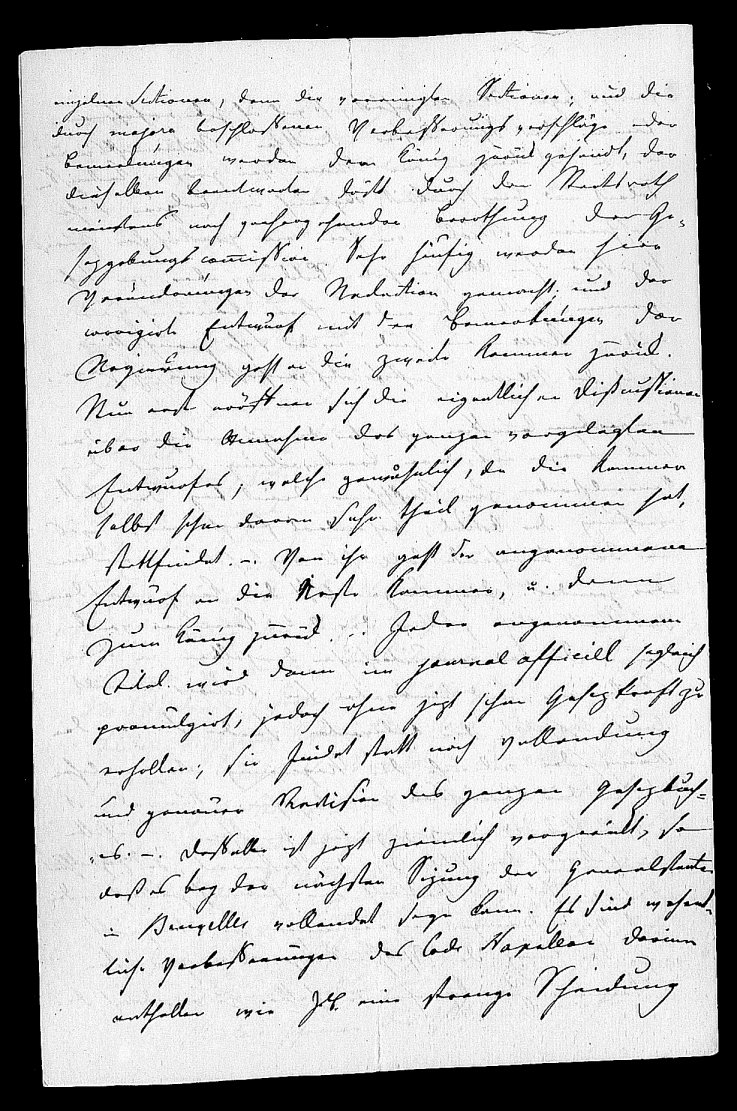 einzelnen Sectionen, dann die vereinigten Sectionen, und die
durch majora beschlossenen Verbesserungsvorschläge oder
Bemerkungen werden dem König zurükgesandt, der
dieselben beantworten läßt durch den Staatsrath
meistens nach vorhergehender Berathung der Ge-
sezgebungscommission. Sehr häufig werden hier
Veränderungen der Redaction gemacht, und der
corrigirte Entwurf mit den Bemerkungen der
Regierung geht an die zweite Kammer zurük.
Nun erst eröffnen sich die eigentlichen Discussionen
über die Annahme des ganzen vorgelegten
Entwurfes, welche gewöhnlich, da die Kammer
selbst schon daran sehr theil genommen hat,
stattfindet. – Von ihr geht der angenommene
Entwurf an die Erste Kammer, u. dann
zum König zurük. – Jeder angenommene
Titel wird dann im journal officiell sogleich
promulgirt, jedoch ohne jezt schon Gesezkraft zu
erhalten; sie findet statt nach vollendung
und genauer Revision des ganzen Gesezbuch-
es. – Dasselbe ist jezt ziemlich vorgerükt, so
daß es bey der nächsten Sizung der Generalstaaten
in Bruxelles vollendet seyn kann. Es sind wesent-
liche Verbesserungen des Code Napoleon darinn
enthalten wie z.B. eine strenge Scheidung